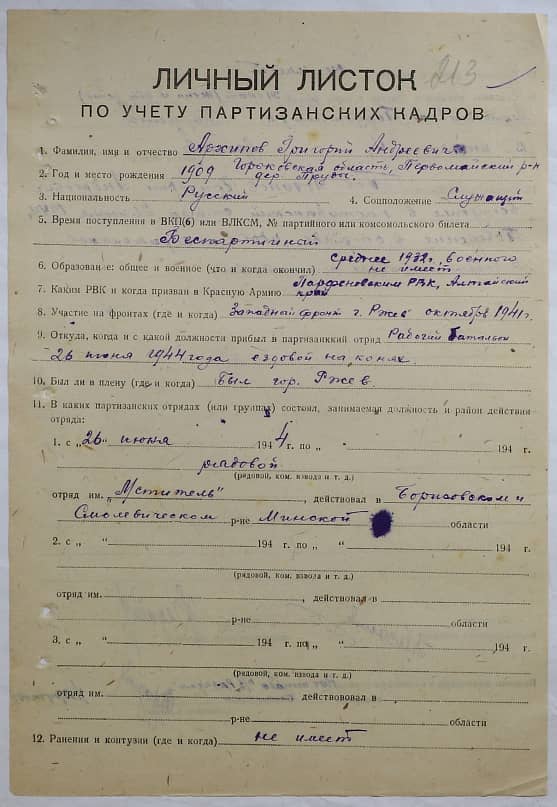 213
ЛИЧНЫЙ ЛИСТОК
ПО УЧЕТУ ПАРТИЗАНСКИХ КАДРОВ
1. Фамилия, имя и отчество Архипов Григорий Андреевич
Горьковская область, Первомайский р-н
2. Год и место рождения 1909 дер. Пруды.
3. Национальность Русский 4. Соцположение Служащий
5. Время поступления в ВКП(б) или ВЛКСМ, № партийного или комсомольского билета
Беспартийный
среднее 1932г. военного
6. Образование: общее и военное (что и когда окончил) не имеет
Парфеновским РВК, Алтайский
7. Каким РВК и когда призван в Красную Армию край
8. Участие на фронтах (где и когда) Западный фронт г. Ржев октябрь 1941 г.
9. Откуда, когда и с какой должности прибыл в партизанский отряд Рабочий батальон
26 июня 1944 года ездовой на конях.
10. Был ли в плену (где и когда) Был гор. Ржев
11. В каких партизанских отрядах (или группах) состоял, занимаемая должность и район действия
отряда:
1. с „26" июня 1944 г. по „ " 194 г.
рядовой
(рядовой, ком. взвода и т. д.)
отряд им. „Мститель" , действовал в Борисовском и
Смолевическом р-не Минской области
2. с „ " 194 г. по „ " 194 г.
(рядовой, ком. взвода и т. д.)
отряд им. , действовал в
р-не области
3. с „ " 194 г. по „ " 194 г.
(рядовой, ком. взвода и т. д.)
отряд им. действововал в
р-не области
12. Ранения и контузии (где и когда) не имеет